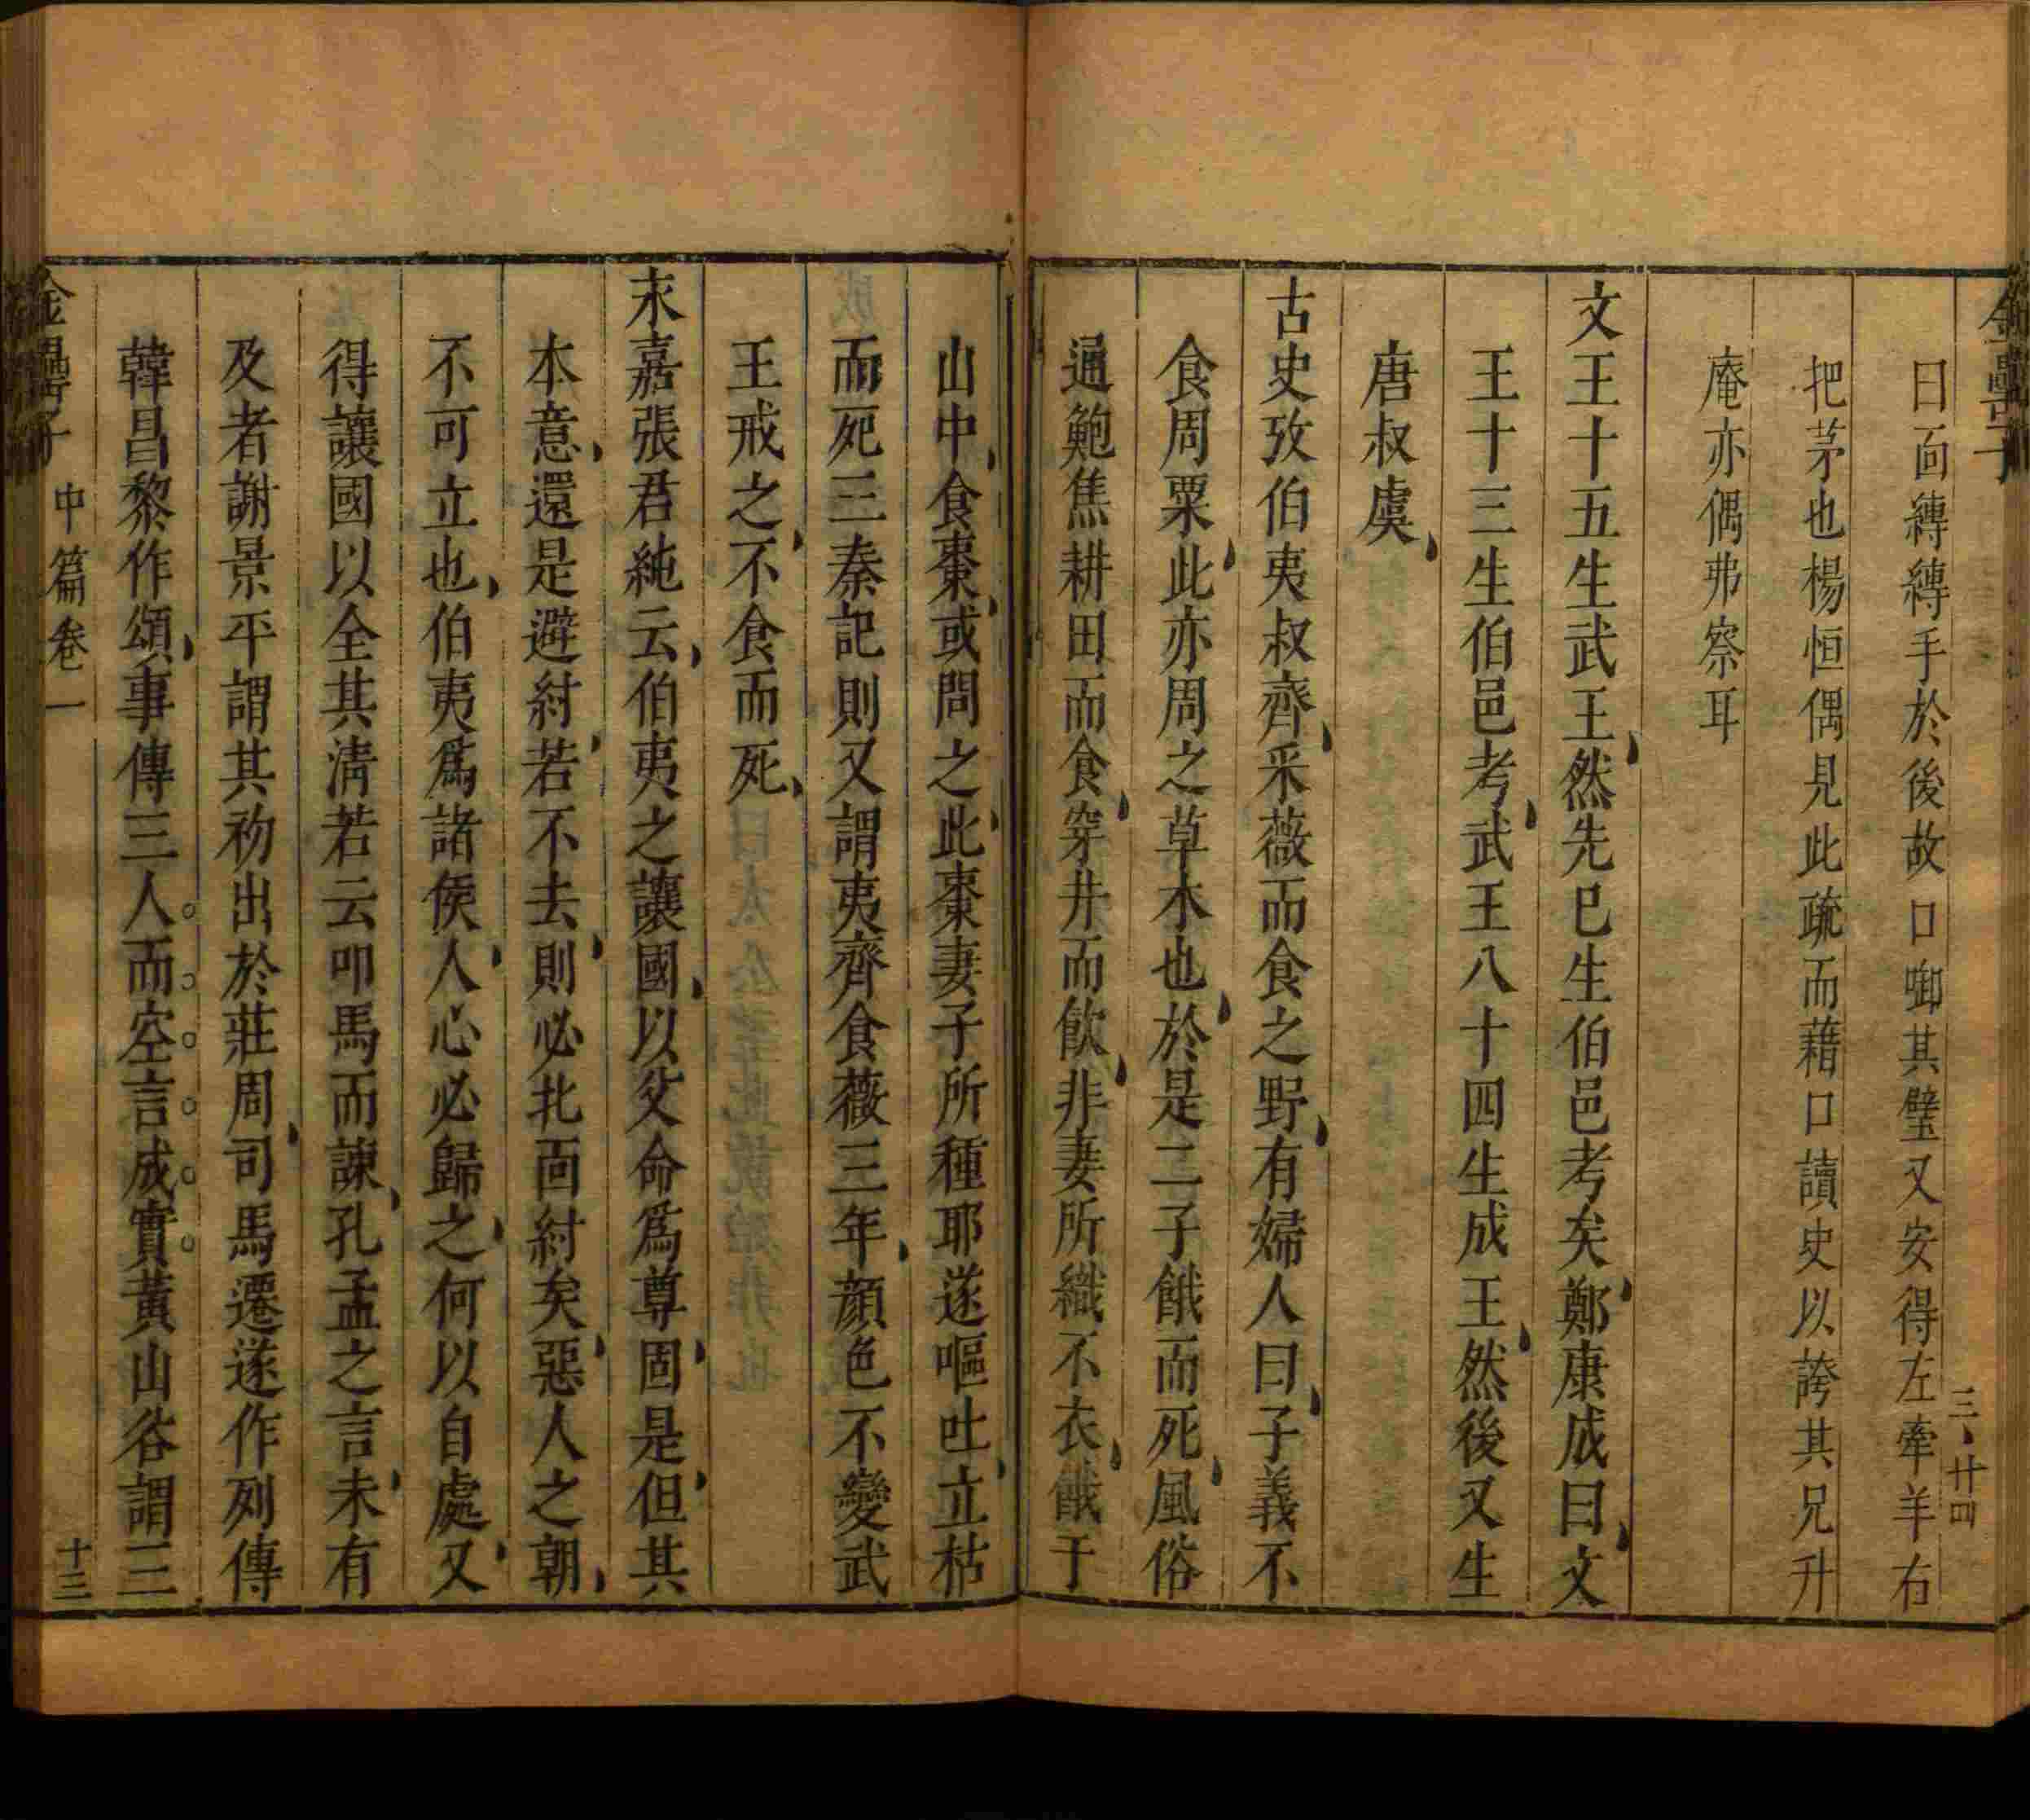 金罍子
三、廿四
曰面縛縛手於後故口啣其璧又安得左牽羊右
把茅也楊恒偶見此疏而藉口讀史以誇其兄升
庵亦偶弗察耳
文王十五生武王然先巳生伯邑考矣鄭康成曰文
王十三生伯邑考武王八十四生成王然後又生
唐叔虞
古史攷伯夷叔齊采薇而食之野有婦人曰子義不
食周粟此亦周之草木也於是二子餓而死風俗
通鮑焦耕田而食穿井而飲非妻所織不衣餓于
山中食棗或問之此棗妻子所種耶遂嘔吐立枯
而死三秦記則又謂夷齊食薇三年顔色不變武
王戒之不食而死
末嘉張君純云伯夷之讓國以父命爲尊固是但其
本意還是避紂若不去則必北面紂矣惡人之朝
不可立也伯夷爲諸侯人心必歸之何以自處又
得讓國以全其淸若云叩馬而諫孔孟之言未有
及者謝景平謂其初出於莊周司馬遷遂作列傳
韓昌黎作頌事傳三人而空言成實黃山谷謂三
金罍子 中篇卷一 十三